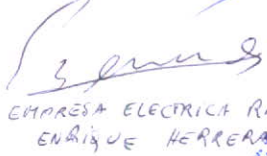 EMPRESA ELECTRICA R
ENRIQUE HERRERA